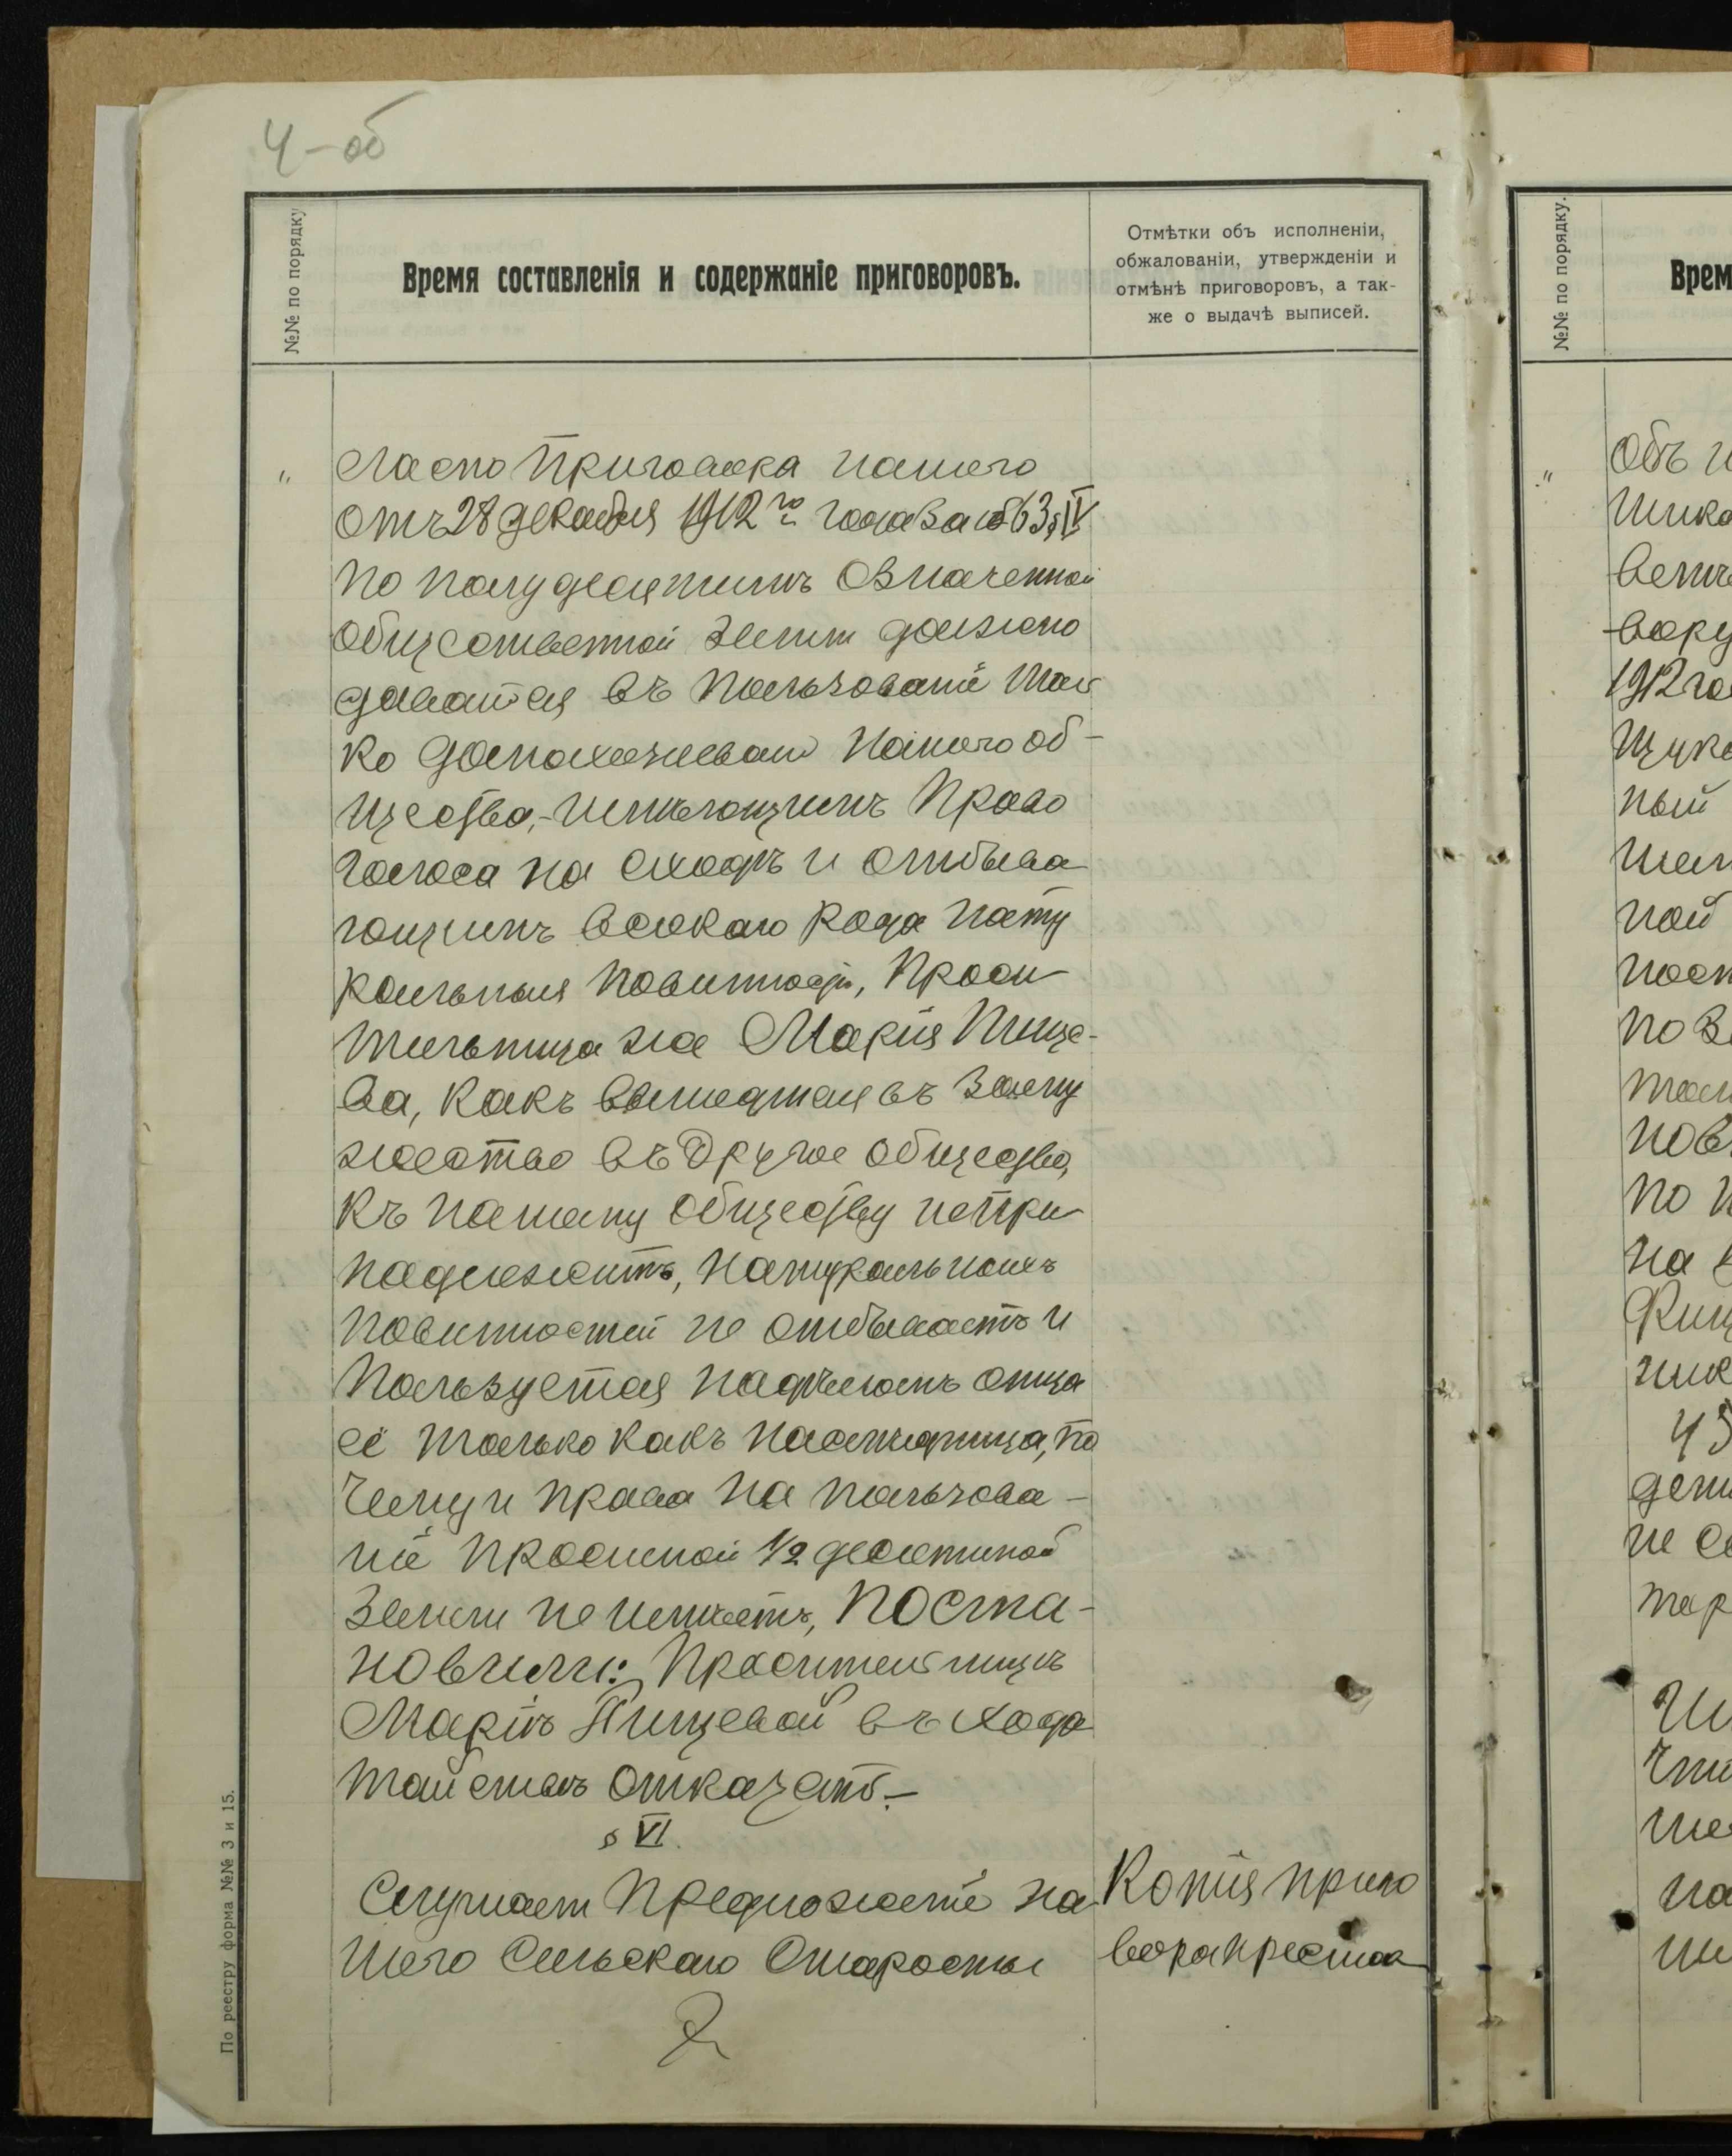 4-об
№№ по порядку
Время составленія и содержаніе приговоровъ.
Отмѣтки объ исполненіи,
обжалованіи, утвержденіи и
отмѣнѣ приговоровъ, а так-
же о выдачѣ выписей.
"
ласно Приговора нашего
отъ 28 декабря 1912 го года за № 63 § IV
по полудесятинѣ означенной
общественной земли должно
даваться въ пользованіе толь
ко домохозяевам нашего об-
щества, - имѣющимъ право
голоса на сходѣ и отбыва
ющимъ всякаго рода нату
ральныя повинности, проси
тельница же Марія Пище-
ва, какъ вышедшая въ заму
жество въ другое общество,
къ нашему обществу не при
надлежитъ, натуральныхъ
повинностей не отбываетъ и
пользуется надѣломъ отца
её только какъ наслѣдница, по
чему и права на пользова-
ніе просимой 1/2 десятиной
земли не имѣетъ, Поста-
новили: Просительницѣ
Маріи Пищевой въ хода
тайствѣ отказать. -
§ VI.
Слушали предложеніе на
шего Сельскаго Старосты
Копія приго
вора предста
По реестру форма №№ 3 и 15.
№№ по порядку.
Врем
"
Объ
1912 го
ный
ной
по
на
45
не